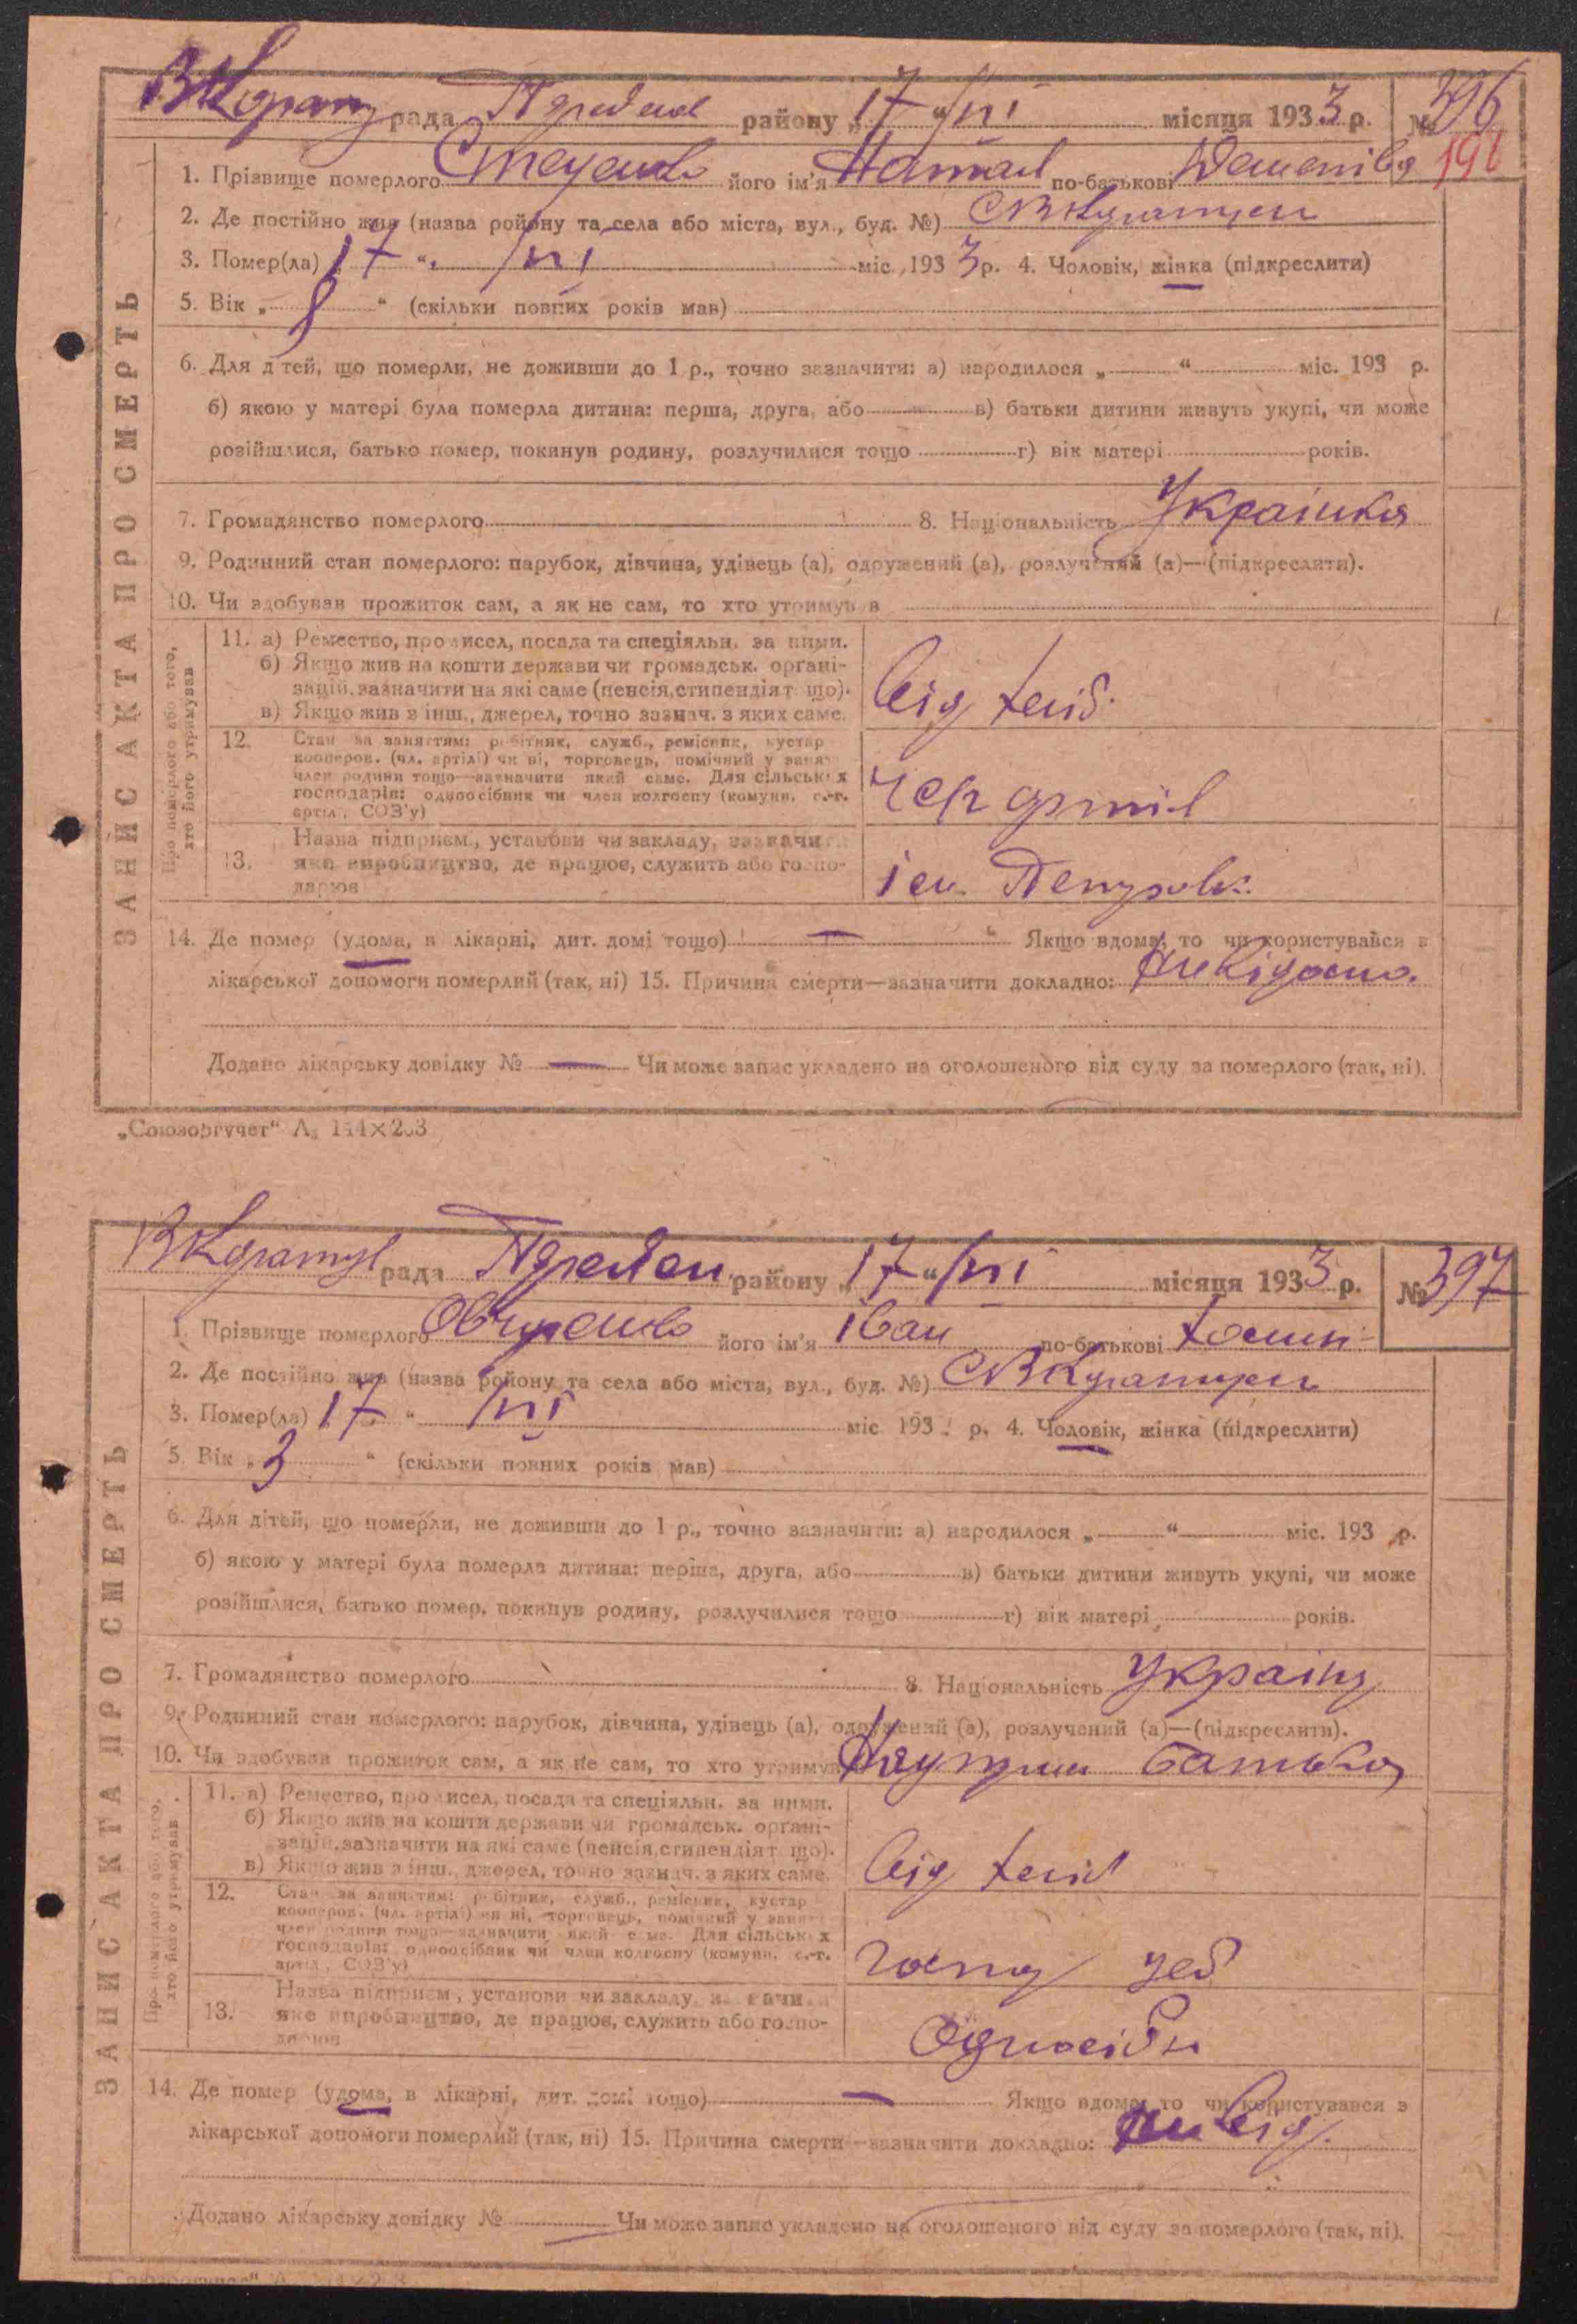 рада району „17“ /VI місяця 1933 р. № 396
1. Прізвище померлого його ім'я Натал по-батькові 198
2. Де постійно жив (назва ройону та села або міста, вул., буд. №)
3. Помер(ла) „17“ /VI міс. 1933 р. 4. Чоловік, жінка (підкреслити)
5. Вік „8“ (скільки повних років мав)
6. Для дітей, що померли, не доживши до 1 р., точно зазначити: а) народилося „ “ міс. 193 р.
б) якою у матері була померла дитина: перша, друга, або в) батьки дитини живуть укупі, чи може
розійшлися, батько помер, покинув родину, розлучилися тощо г) вік матері років.
7. Громадянство померлого 8. Національність Українка
9. Родинний стан померлого: парубок, дівчина, удівець (а), одружений (а), розлучений (а)—(підкреслити).
10. Чи здобував прожиток сам, а як не сам, то хто утримував
ЗАПИС АКТА ПРО СМЕРТЬ
Про померлого або того, хто його утримував
11. а) Ремество, промисел, посада та спеціяльн. за ними.
б) Якщо жив на кошти держави чи громадськ. органі-
зацій, зазначити на які саме (пенсія, стипендія т що).
в) Якщо жив з інш., джерел, точно зазнач. з яких саме.
від
12. Стан за заняттям: робітник, служб., ремісник, кустар
кооперов. (чл. артілі) чи ні, торговець, помічний у занят
член родини тощо—зазначити який саме. Для сільських
господарів: одноосібник чи член колгоспу (комуни, с.-г.
артіл., СОЗ'у)
13. Назва підприєм., установи чи закладу, зазначити
яке виробництво, де працює, служить або госпо-
дарює
ім. Петровск.
14. Де помер (удома, в лікарні, дит. домі тощо) — Якщо вдома, то чи користувався з
лікарської допомоги померлий (так, ні) 15. Причина смерти—зазначити докладно: невідома.
Додано лікарську довідку № — Чи може запис укладено на оголошеного від суду за померлого (так, ні).
„Союзоргучет“
рада району „17“ /VI місяця 1933 р. № 397
1. Прізвище померлого його ім'я Іван по-батькові
2. Де постійно жив (назва ройону та села або міста, вул., буд. №)
3. Помер(ла) 17 “ /VI міс. 193 р. 4. Чоловік, жінка (підкреслити)
5. Вік „3“ (скільки повних років мав)
6. Для дітей, що померли, не доживши до 1 р., точно зазначити: а) народилося „ “ міс. 193 р.
б) якою у матері була померла дитина: перша, друга, або в) батьки дитини живуть укупі, чи може
розійшлися, батько помер, покинув родину, розлучилися тощо г) вік матері років.
7. Громадянство померлого 8. Національність Украінц
9. Родинний стан померлого: парубок, дівчина, удівець (а), одружений (а), розлучений (а)—(підкреслити).
10. Чи здобував прожиток сам, а як не сам, то хто утримував На утрим батька
ЗАПИС АКТА ПРО СМЕРТЬ
Про померлого або того, хто його утримував
11. а) Ремество, промисел, посада та спеціяльн. за ними.
б) Якщо жив на кошти держави чи громадськ. органі-
зацій, зазначити на які саме (пенсія, стипендія т що).
в) Якщо жив з інш., джерел, точно зазнач. з яких саме.
від
12. Стан за заняттям: робітник, служб., ремісник, кустар
кооперов. (чл. артілі) чи ні, торговець, помічний у занят
член родини тощо—зазначити який саме. Для сільських
господарів: одноосібник чи член колгоспу (комуни, с.-г.
артіл., СОЗ'у)
13. Назва підприєм., установи чи закладу, зазначити
яке виробництво, де працює, служить або госпо-
дарює
Одноосібн
14. Де помер (удома, в лікарні, дит. домі тощо) — Якщо вдома, то чи користувався з
лікарської допомоги померлий (так, ні) 15. Причина смерти—зазначити докладно: невід.
Додано лікарську довідку № Чи може запис укладено на оголошеного від суду за померлого (так, ні).